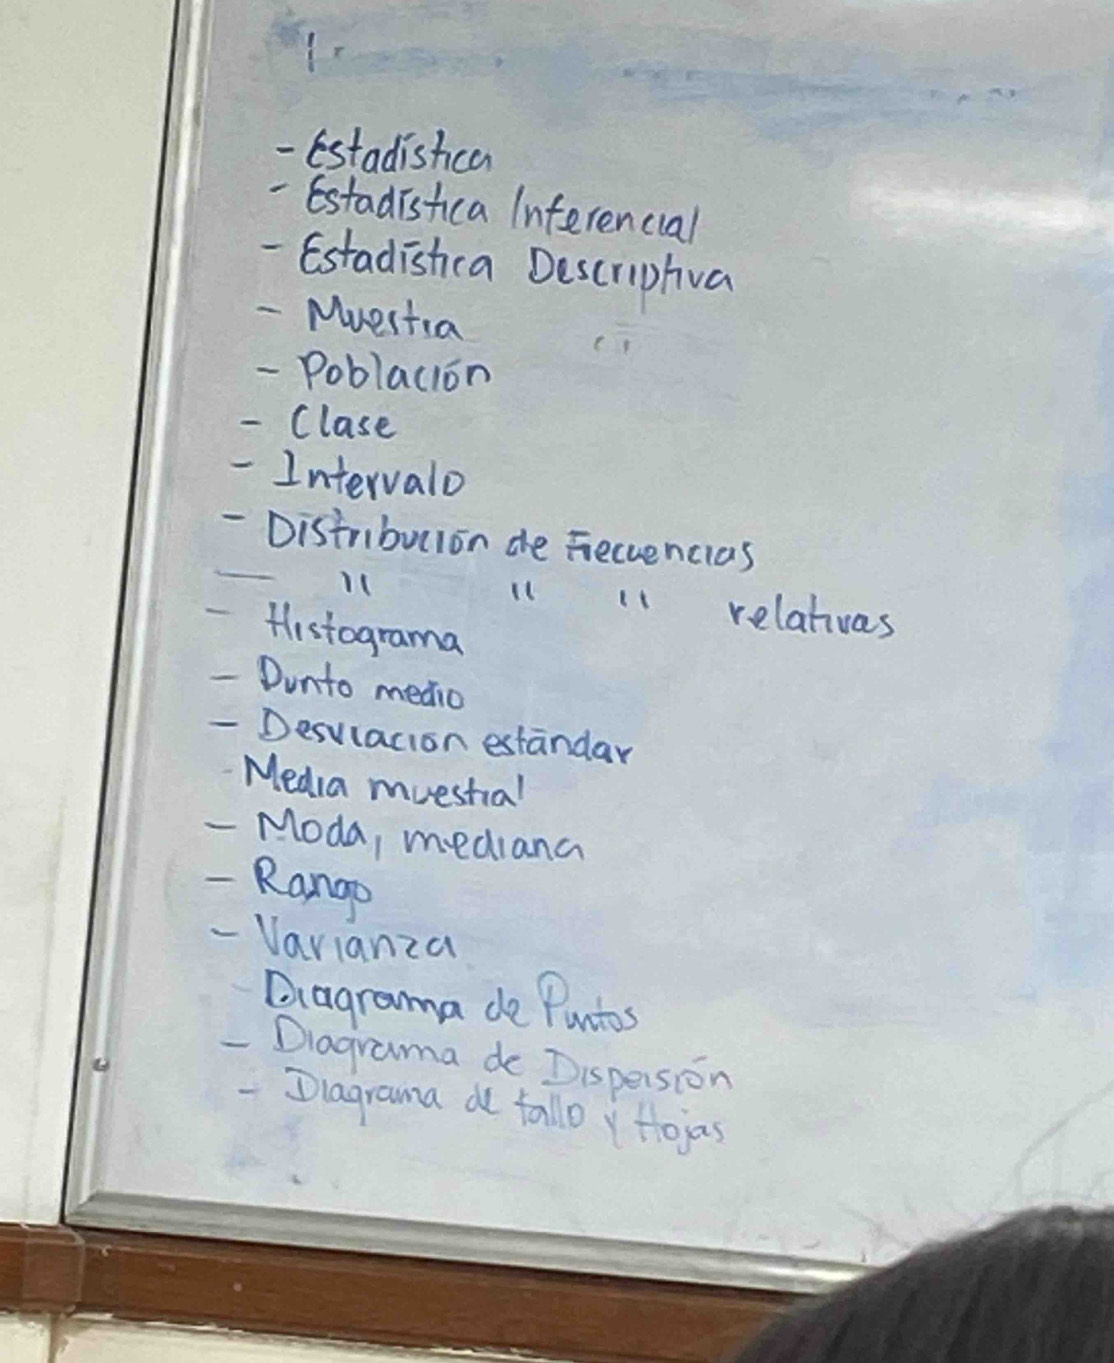 - Estadística
- Estadística Inferencial
- Estadística Descriptiva
- Muestra
- Población
- Clase
- Intervalo
- Distribución de Frecuencias
— " " " relativas
- Histograma
- Punto medio
- Desviación estándar
- Media muestral
- Moda, mediana
- Rango
- Varianza
- Diagrama de Puntos
- Diagrama de Dispersión
- Diagrama de tallo y Hojas